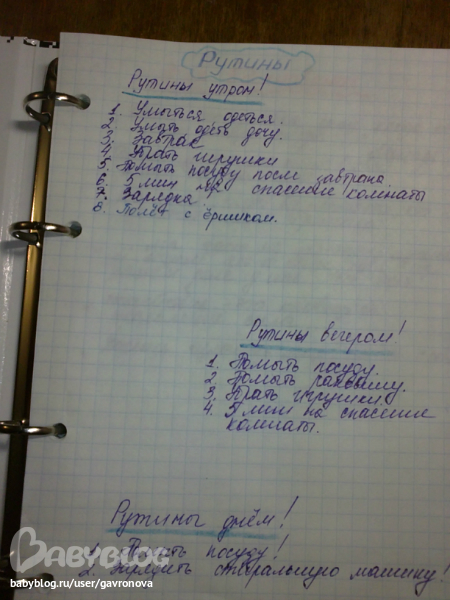 Рутины
Рутины утром!
1. Умыться, одеться.
2. Умыть, одеть дочу.
3. Завтрак
4. Убрать игрушки
5. Помыть посуду после завтрака
6. 5 мин на спасение комнаты
7. Зарядка
8. Полёт с ёршиком.
Рутины вечером!
1. Помыть посуду.
2. Помыть раковину.
3. Убрать игрушки.
4. 5 мин на спасение
комнаты.
Рутины днём!
1. Помыть посуду!
2. Зарядить стиральную машину!
BABYBLOG
babyblog.ru/user/gavronova